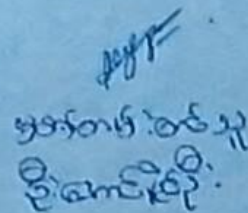 မှတ်တမ်းတင်သူ
ဦးကောင်းနိုင်ဦး